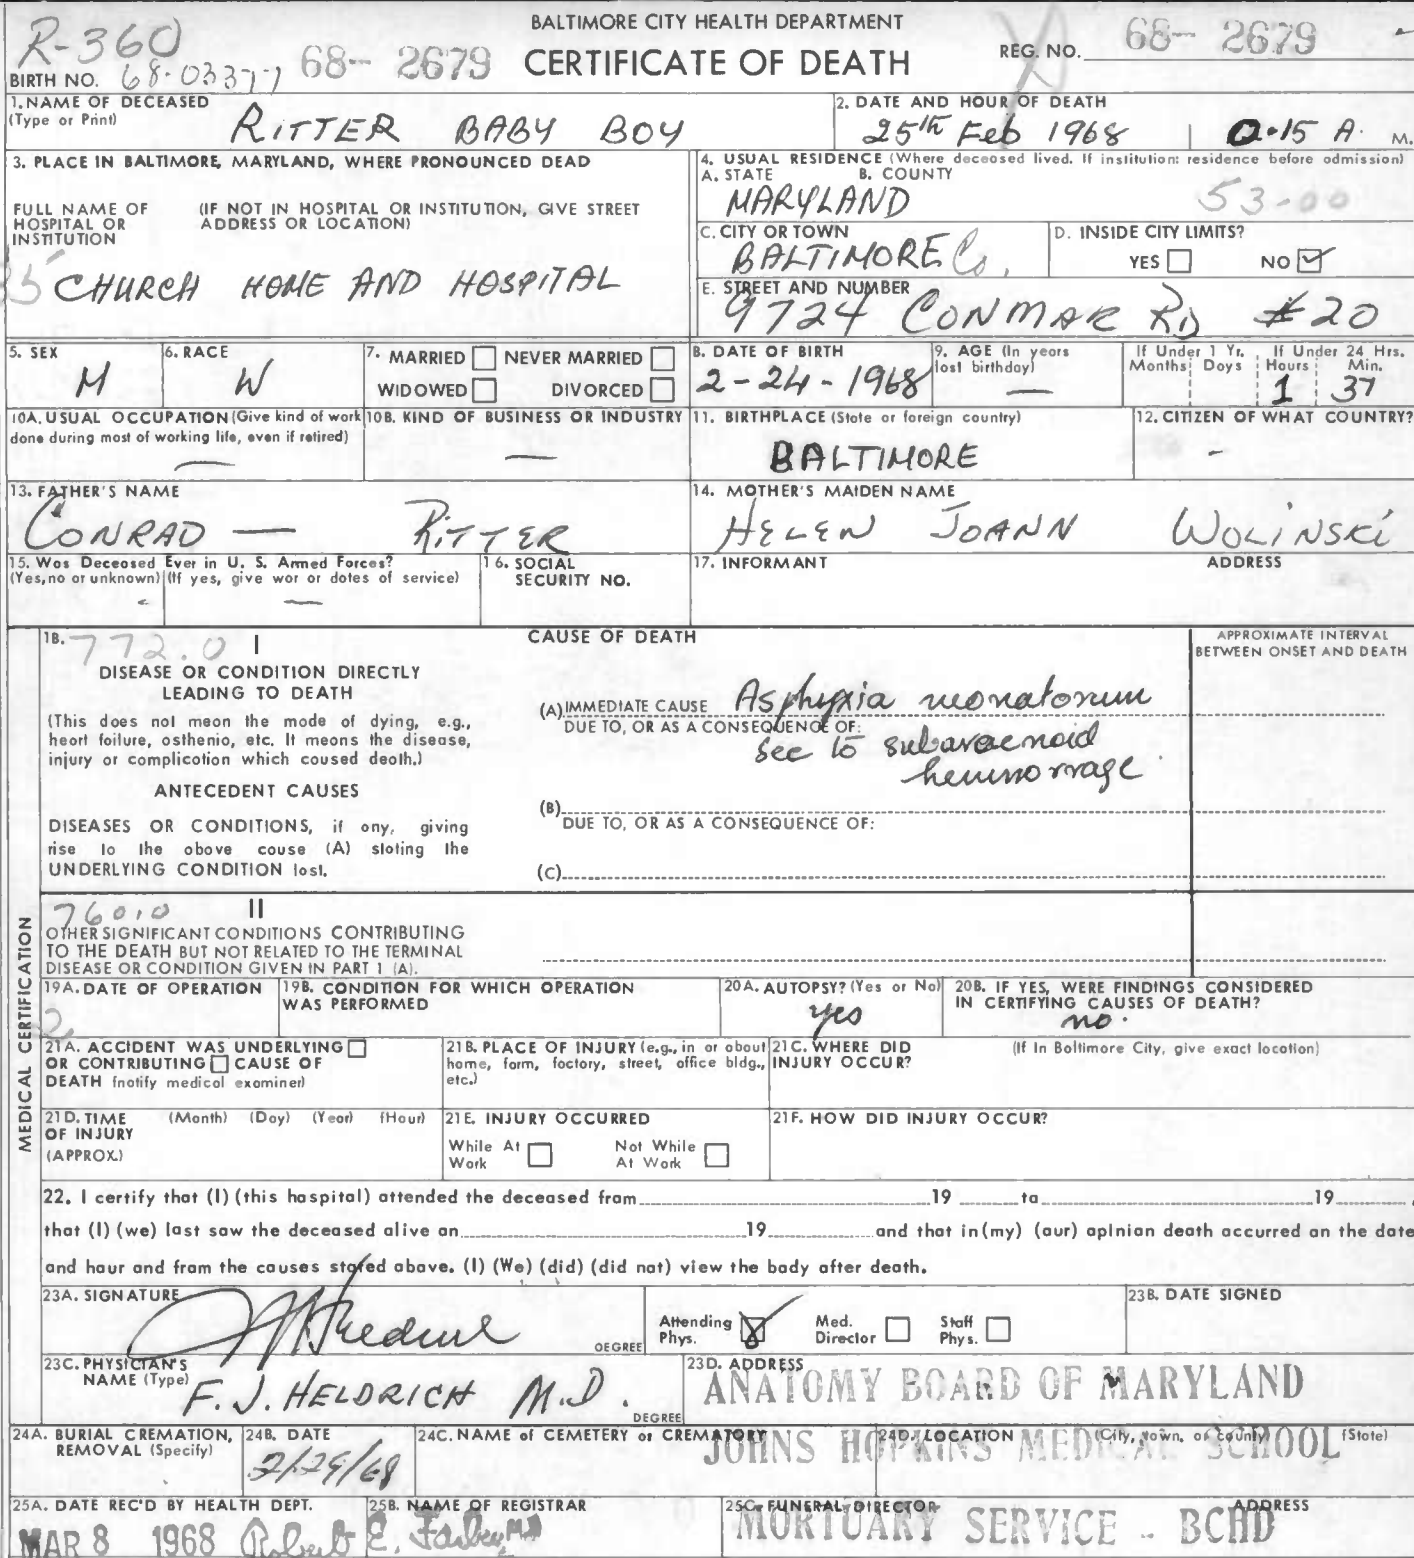 BALTIMORE CITY HEALTH DEPARTMENT
R-360
68-- 2679 CERTIFICATE OF DEATH REG. NO. 68-- 2679
BIRTH NO. 68-03377
1. NAME OF DECEASED (Type or Print) RITTER BABY BOY
2. DATE AND HOUR OF DEATH 25th Feb 1968 0.15 A. M.
3. PLACE IN BALTIMORE, MARYLAND, WHERE PRONOUNCED DEAD
FULL NAME OF HOSPITAL OR INSTITUTION (IF NOT IN HOSPITAL OR INSTITUTION, GIVE STREET ADDRESS OR LOCATION)
35 CHURCH HOME AND HOSPITAL
4. USUAL RESIDENCE (Where deceased lived. If institution: residence before admission)
A. STATE B. COUNTY
MARYLAND 53-00
C. CITY OR TOWN BALTIMORE Co.
D. INSIDE CITY LIMITS? YES NO
E. STREET AND NUMBER
9724 CONMAR RD #20
5. SEX M
6. RACE W
7. MARRIED NEVER MARRIED
WIDOWED DIVORCED
8. DATE OF BIRTH 2-24-1968
9. AGE (In years last birthday) —
If Under 1 Yr. Months Days
If Under 24 Hrs. Hours Min.
1 37
10A. USUAL OCCUPATION (Give kind of work done during most of working life, even if retired) —
10B. KIND OF BUSINESS OR INDUSTRY —
11. BIRTHPLACE (State or foreign country) BALTIMORE
12. CITIZEN OF WHAT COUNTRY? -
13. FATHER'S NAME
CONRAD — RITTER
14. MOTHER'S MAIDEN NAME
HELEN JOANN WOLINSKI
15. Was Deceased Ever in U. S. Armed Forces?
(Yes, no or unknown) (If yes, give war or dates of service)
- —
16. SOCIAL SECURITY NO.
17. INFORMANT ADDRESS
MEDICAL CERTIFICATION
18. 772.0 I
CAUSE OF DEATH
APPROXIMATE INTERVAL BETWEEN ONSET AND DEATH
DISEASE OR CONDITION DIRECTLY LEADING TO DEATH
(This does not mean the mode of dying, e.g., heart failure, asthenia, etc. It means the disease, injury or complication which caused death.)
ANTECEDENT CAUSES
DISEASES OR CONDITIONS, if any, giving rise to the above cause (A) stating the UNDERLYING CONDITION last.
(A) IMMEDIATE CAUSE Asphyxia neonatorum
DUE TO, OR AS A CONSEQUENCE OF:
sec to subaracnoid
hemmorrage
(B)
DUE TO, OR AS A CONSEQUENCE OF:
(C)
760.0 II
OTHER SIGNIFICANT CONDITIONS CONTRIBUTING TO THE DEATH BUT NOT RELATED TO THE TERMINAL DISEASE OR CONDITION GIVEN IN PART 1 (A).
19A. DATE OF OPERATION
2
19B. CONDITION FOR WHICH OPERATION WAS PERFORMED
20A. AUTOPSY? (Yes or No) yes
20B. IF YES, WERE FINDINGS CONSIDERED IN CERTIFYING CAUSES OF DEATH? no.
21A. ACCIDENT WAS UNDERLYING OR CONTRIBUTING CAUSE OF DEATH (notify medical examiner)
21B. PLACE OF INJURY (e.g., in or about home, farm, factory, street, office bldg., etc.)
21C. WHERE DID INJURY OCCUR? (If in Baltimore City, give exact location)
21D. TIME OF INJURY (APPROX.) (Month) (Day) (Year) (Hour)
21E. INJURY OCCURRED
While At Work Not While At Work
21F. HOW DID INJURY OCCUR?
22. I certify that (I) (this hospital) attended the deceased from 19 to 19
that (I) (we) last saw the deceased alive on 19 and that in (my) (our) opinion death occurred on the date
and hour and from the causes stated above. (I) (We) (did) (did not) view the body after death.
23A. SIGNATURE DEGREE
Attending Phys. Med. Director Staff Phys.
23B. DATE SIGNED
23C. PHYSICIAN'S NAME (Type) F. J. HELDRICH M.D. DEGREE
23D. ADDRESS
ANATOMY BOARD OF MARYLAND
24A. BURIAL CREMATION, REMOVAL (Specify)
24B. DATE 2/29/68
24C. NAME of CEMETERY or CREMATORY
24D. LOCATION (City, town, or county) (State)
JOHNS HOPKINS MEDICAL SCHOOL
25A. DATE REC'D BY HEALTH DEPT.
MAR 8 1968
25B. NAME OF REGISTRAR
Robert E. Farber, MD
25C. FUNERAL DIRECTOR ADDRESS
MORTUARY SERVICE - BCHD